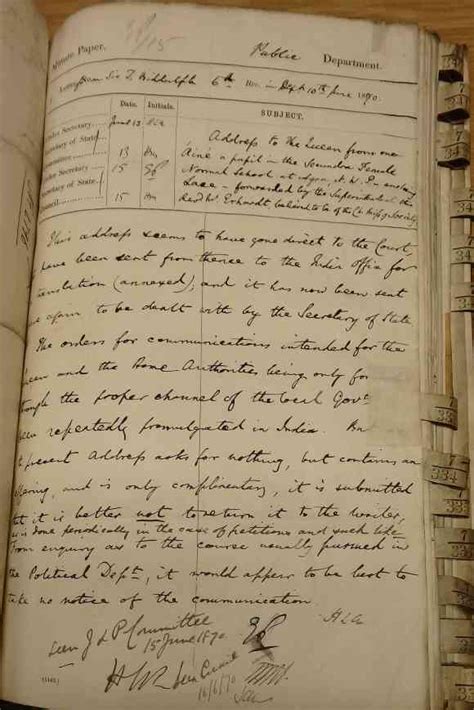 815
Minute Paper.
Public Department.
from Sir T. Biddulph 6th Rec. in Dept 10th June 1870.
Date. Initials. SUBJECT.
Secretary
Secretary of State
Committee
Secretary
Secretary of State
Council
June 13
13
15
15
Address to the Queen from one
a pupil in the Secundra Female
Normal School at Agra, N.W.
Lace - forwarded by the Superintendent the
Revd W. Erhardt, of the Ch. Missy Society
This address seems to have gone direct to the Court,
have been sent from thence to the India Office for
translation (annexed), and it has now been sent
to be dealt with by the Secretary of State
The orders for communications intended for the
Queen and the Home Authorities being only for
through the proper channel of the local Govt
been repeatedly promulgated in India. But
present Address asks for nothing, but contains an
offering, and is only complimentary, it is submitted
that it is better not to return it to the writer,
as is done periodically in the case of petitions and such like.
From enquiry as to the course usually pursued in
the Political Deptt, it would appear to be best to
take no notice of the communication.
Seen J & P Committee
15 June 1870
Seen Council
16/6/70
334
334
334
334